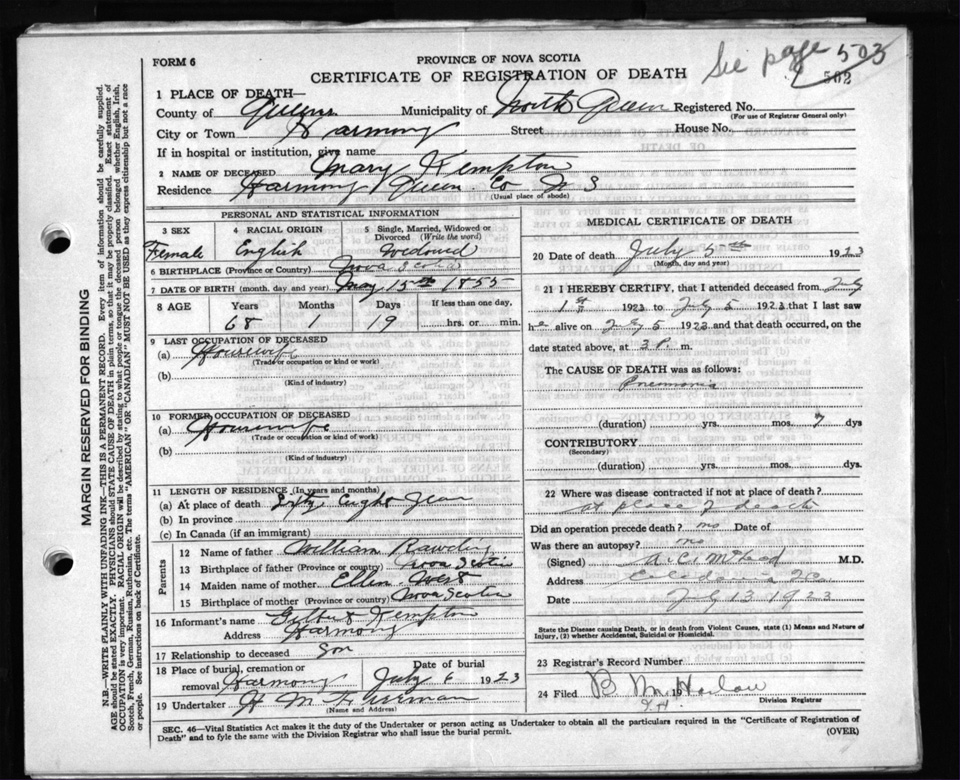 See page 503
502
FORM 6
PROVINCE OF NOVA SCOTIA
CERTIFICATE OF REGISTRATION OF DEATH
1 PLACE OF DEATH—
County of Queens Municipality of North Queen Registered No.
(For use of Registrar General only)
City or Town Harmony Street House No.
If in hospital or institution, give name
2 NAME OF DECEASED Mary Kempton
Residence Harmony Queen Co N S
(Usual place of abode)
PERSONAL AND STATISTICAL INFORMATION
3 SEX 4 RACIAL ORIGIN 5 Single, Married, Widowed or Divorced (Write the word)
Female English Widowed
6 BIRTHPLACE (Province or Country) Nova Scotia
7 DATE OF BIRTH (month, day and year) May 15th 1855
8 AGE Years Months Days If less than one day,
68 1 19 hrs. or min.
9 LAST OCCUPATION OF DECEASED
(a) Housewife
(Trade or occupation or kind or work)
(b)
(Kind of industry)
10 FORMER OCCUPATION OF DECEASED
(a) Housewife
(Trade or occupation or kind of work)
(b)
(Kind of industry)
11 LENGTH OF RESIDENCE (In years and months)
(a) At place of death Sixty Eight Year
(b) In province
(c) In Canada (if an immigrant)
Parents
12 Name of father William
13 Birthplace of father (Province or country) Nova Scotia
14 Maiden name of mother Ellen West
15 Birthplace of mother (Province or country) Nova Scotia
16 Informant's name Gilbert Kempton
Address Harmony
17 Relationship to deceased Son
18 Place of burial, cremation or removal Harmony Date of burial July 6 1923
19 Undertaker H M
(Name and Address)
MEDICAL CERTIFICATE OF DEATH
20 Date of death July 5th 1923
(Month, day and year)
21 I HEREBY CERTIFY, that I attended deceased from July
1st 1923 to July 5 1923 that I last saw
he alive on July 5 1923 and that death occurred, on the
date stated above, at 3 P. m.
The CAUSE OF DEATH was as follows:
Pnemonia
(duration) yrs. mos. 7 dys
CONTRIBUTORY
(Secondary)
(duration) yrs. mos. dys.
22 Where was disease contracted if not at place of death?
at place of death
Did an operation precede death? no Date of
Was there an autopsy? no
(Signed) M.D.
Address Caledonia
Date July 13 1923
State the Disease causing Death, or in death from Violent Causes, state (1) Means and Nature of
Injury, (2) whether Accidental, Suicidal or Homicidal.
23 Registrar's Record Number
24 Filed 19 Harlow
Division Registrar
SEC. 46—Vital Statistics Act makes it the duty of the Undertaker or person acting as Undertaker to obtain all the particulars required in the "Certificate of Registration of
Death" and to fyle the same with the Division Registrar who shall issue the burial permit.
(OVER)
MARGIN RESERVED FOR BINDING
N.B.—WRITE PLAINLY WITH UNFADING INK—THIS IS A PERMANENT RECORD. Every item of information should be carefully supplied.
AGE should be stated EXACTLY. PHYSICIANS should STATE CAUSE OF DEATH in plain terms, so that it may be properly classified. Exact statement of
OCCUPATION is very important. RACIAL ORIGIN will be described by stating to what people or tongue the deceased person belonged whether English, Irish,
Scotch, French, German, Russian, Ruthenian, etc. The terms "AMERICAN" OR "CANADIAN" MUST NOT BE USED as they express citizenship but not a race
or people. See instructions on back of Certificate.